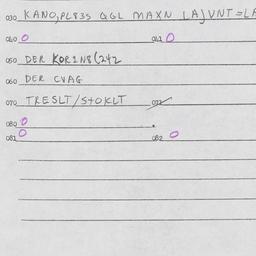 030 KANO,PL835 QGL MAXN LAJVNT=LA
040 0 041 0
050 DER KORINS(242
060 DER CVAG
070 TRESLT/STOKLT 072
080 0
081 0 082 0